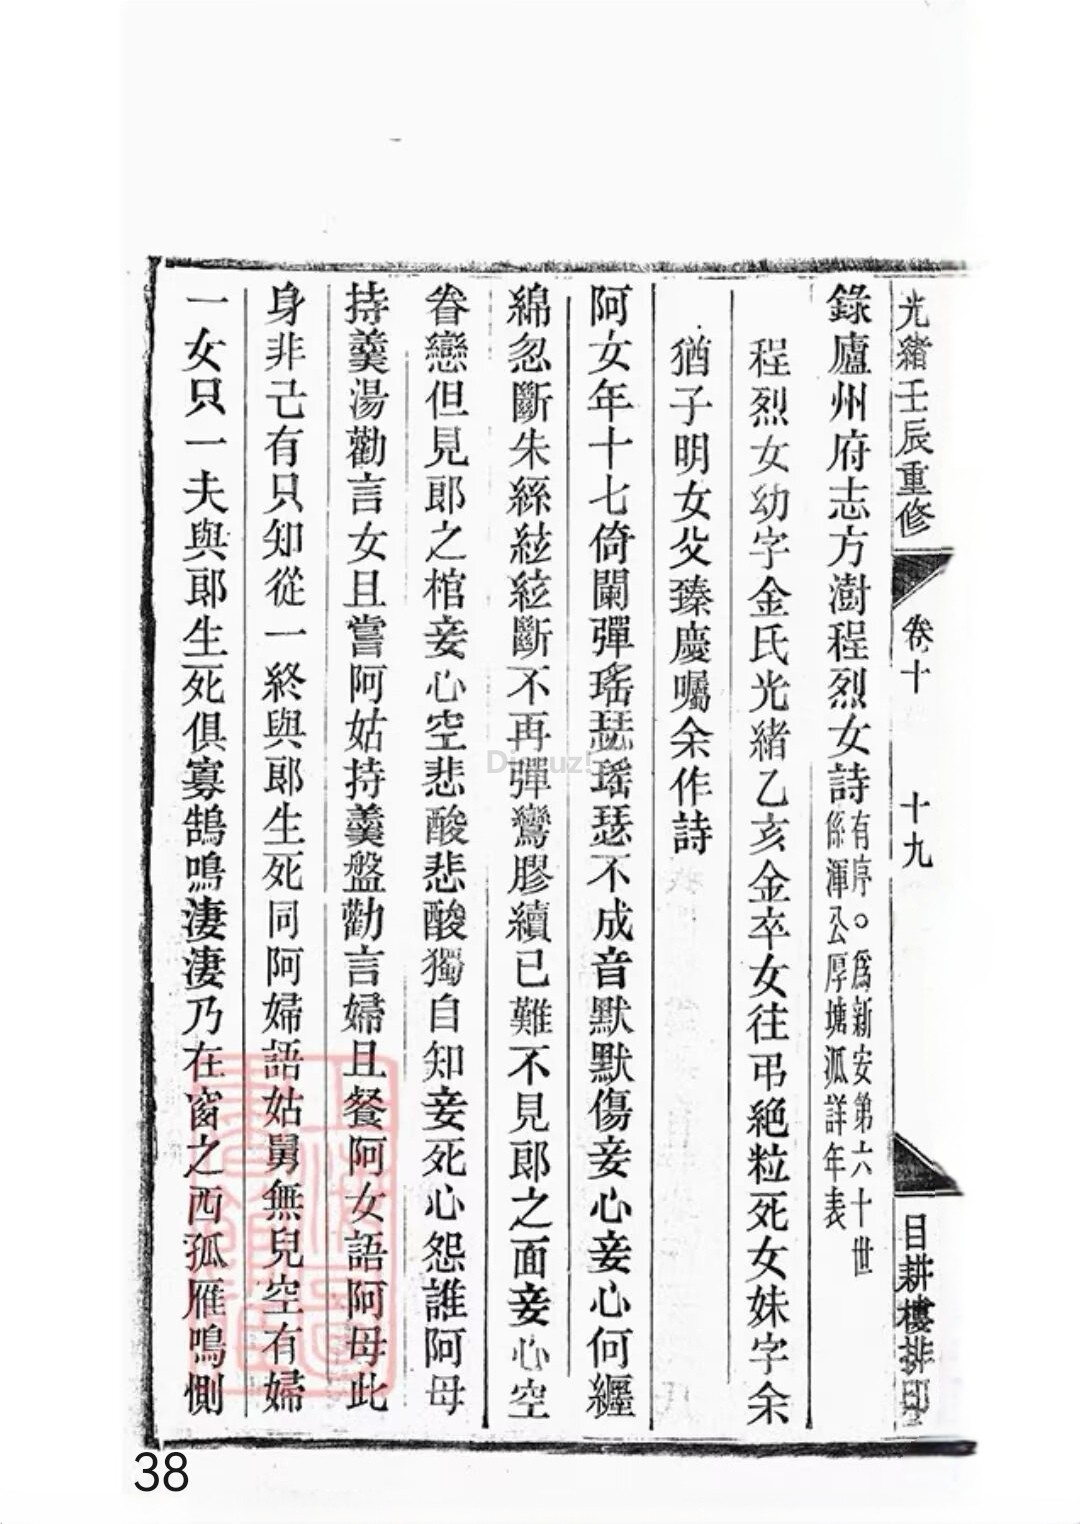 光緒壬辰重修 卷十 十九 目耕樓排印
錄廬州府志方澍程烈女詩有序○爲新安第六十世係渾公厚塘派詳年表
程烈女幼字金氏光緒乙亥金卒女往弔絕粒死女妹字余
猶子明女父臻慶囑余作詩
阿女年十七倚闌彈瑤瑟瑤瑟不成音默默傷妾心妾心何纏
綿忽斷朱絲絃絃斷不再彈鸞膠續已難不見郎之面妾心空
眷戀但見郎之棺妾心空悲酸悲酸獨自知妾死心怨誰阿母
持羹湯勸言女且嘗阿姑持羹盤勸言婦且餐阿女語阿母此
身非己有只知從一終與郎生死同阿婦語姑舅無兒空有婦
一女只一夫與郎生死俱寡鵠鳴淒淒乃在窗之西孤雁鳴惻
Discuz!
38